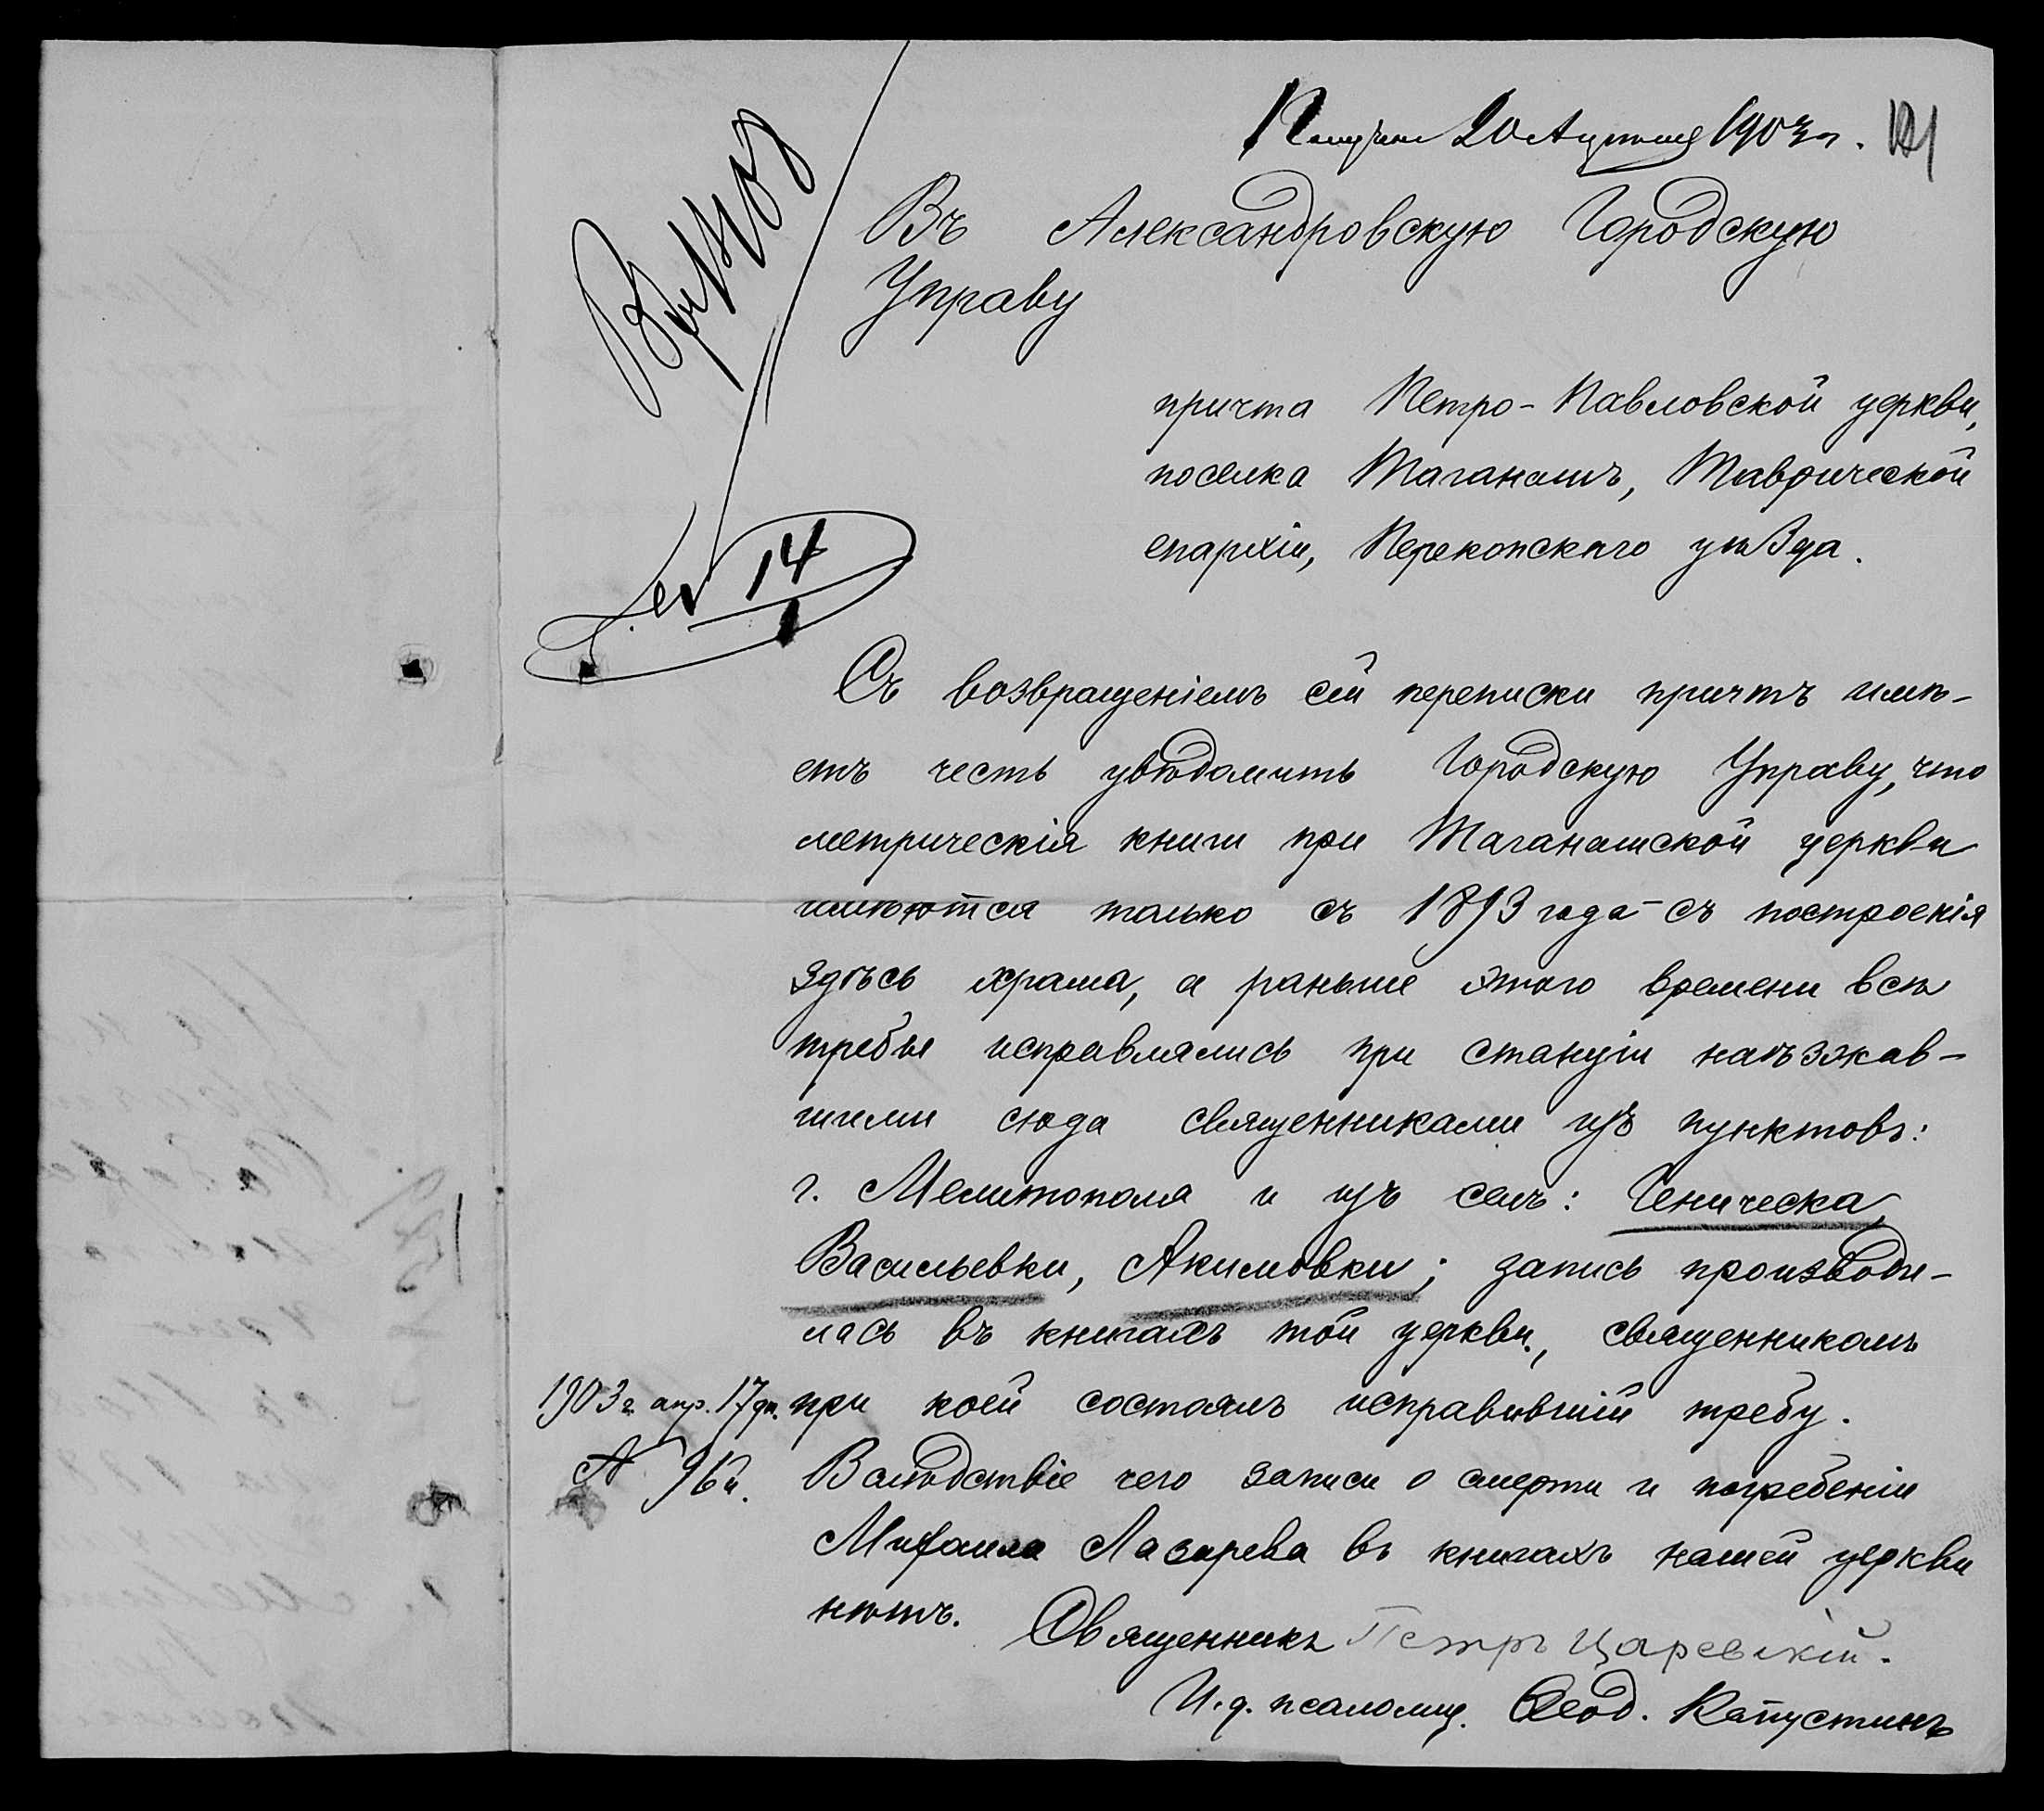 20 1903 г.
Въ Александровскую Городскую
Управу
причта Петро-Павловской церкви,
поселка Таганашъ, Таврической
епархіи, Перекопскаго уѣзда.
14
1
Съ возвращеніемъ сей переписки причтъ имѣ-
етъ честь увѣдомить Городскую Управу, что
метрическія книги при Таганашской церкви
имѣются только съ 1893 года - съ построенія
здѣсь храма, а раньше этого времени всѣ
требы исправлялись при станціи наѣзжав-
шими сюда священниками изъ пунктовъ:
г. Мелитополя и изъ селъ: Геническа,
Васильевки, Акимовки; запись производи-
лась въ книгахъ той церкви, священникомъ
при коей состоялъ исправившій требу.
1903 г. апр. 17 дн.
№ 96
Вслѣдствіе чего записи о смерти и погребеніи
Михаила Лазарева въ книгахъ нашей церкви
нѣтъ.
Священникъ Петръ Царевскій.
И. д. псаломщ. Ѳеод. Капустинъ